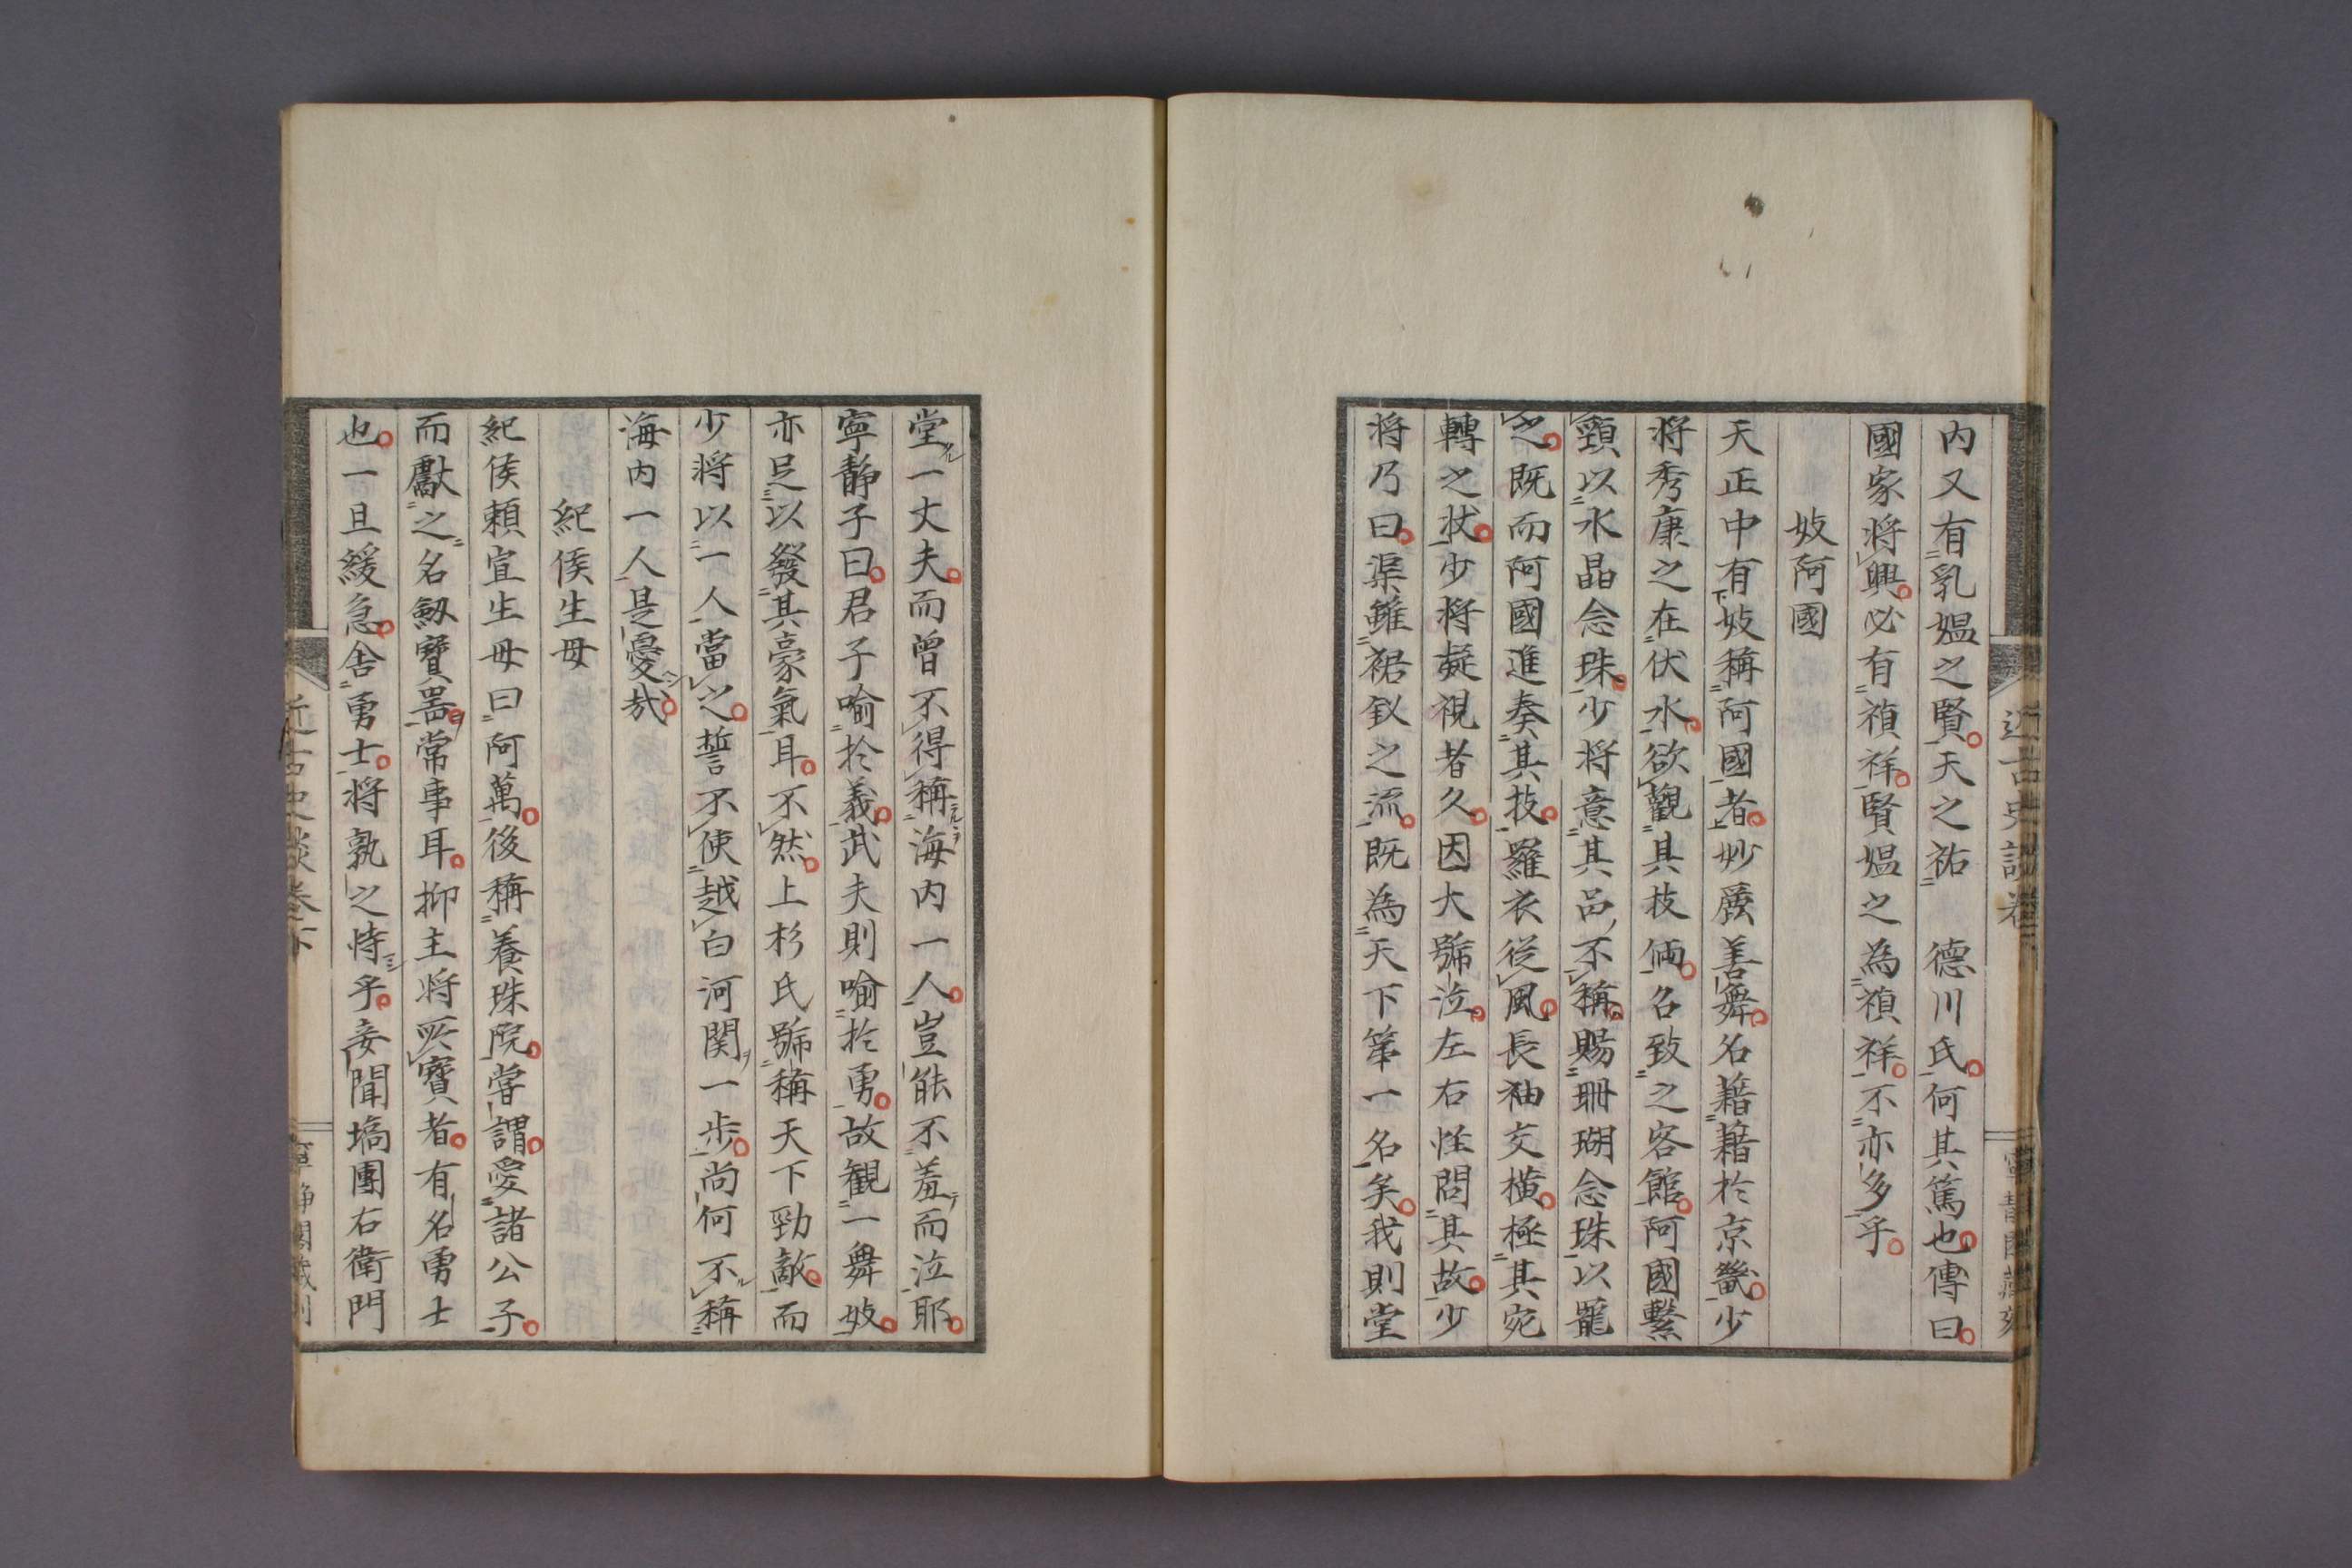 内又有乳媼之賢天之祐　德川氏何其篤也傳曰
國家將興必有禎祥賢媼之為禎祥不亦多乎
妓阿國
天正中有妓稱阿國者妙麗善舞名藉藉於京畿少
將秀康之在伏水欲觀其技倆召致之客館阿國繫
頸以水晶念珠少將意其品不稱賜珊瑚念珠以罷
之既而阿國進奏其技羅衣從風長袖交橫極其宛
轉之狀少將凝視者久因大號泣左右怪問其故少
將乃曰渠雖裙釵之流既為天下第一名矣我則堂
堂一丈夫而曾不得稱海内一人豈能不羞而泣耶
寧靜子曰君子喻於義武夫則喻於勇故観一舞妓
亦足以發其豪氣耳不然上杉氏號稱天下勁敵而
少將以一人當之誓不使越白河関一步尚何不稱
海内一人是憂哉
紀侯生母
紀侯頼宣生母曰阿萬後稱養珠院嘗謂愛諸公子
而獻之名劔寶器常事耳抑主將所寶者有名勇士
也一旦緩急舍勇士將孰之恃乎妾聞塙團右衛門
近古史談卷下